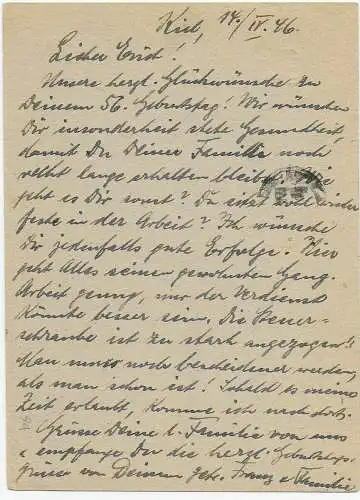 Kiel, 14./IV. 46.
Lieber Ernst!
Unsere herzl. Glückwünsche zu
Deinem 56. Geburtstag! Wir wünschen
Dir insonderheit stete Gesundheit,
damit Du Deiner Familie noch
recht lange erhalten bleibst. Wie
geht es Dir sonst? Du sitzt wohl wieder
feste in der Arbeit? Ich wünsche
Dir jedenfalls gute Erfolge. Hier
geht Alles seinen gewohnten Gang.
Arbeit genug, nur der Verdienst
könnte besser sein. Die Steuer-
schraube ist zu stark angezogen!!
Man muss noch bescheidener werden,
als man schon ist! Sobald es meine
Zeit erlaubt, komme ich nach dort.
Grüsse Deine l. Familie von uns
u. empfange Du die herzl. Geburtstags-
grüsse von Deinem getr. Franz u. Familie